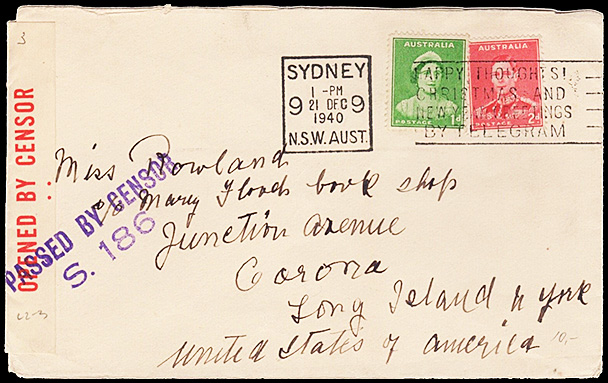 3
AUSTRALIA
POSTAGE 1d
AUSTRALIA
POSTAGE 2d
SYDNEY
1-PM
9 21 DEC 9
1940
N.S.W. AUST.
HAPPY THOUGHTS!
CHRISTMAS AND
NEW YEAR GREETINGS
BY TELEGRAM
OPENED BY CENSOR
PASSED BY CENSOR
S. 186
Miss Rowland
c/o Mary Floods book shop
Junction Avenue
Corona
Long Island n york
united states of america
10,-